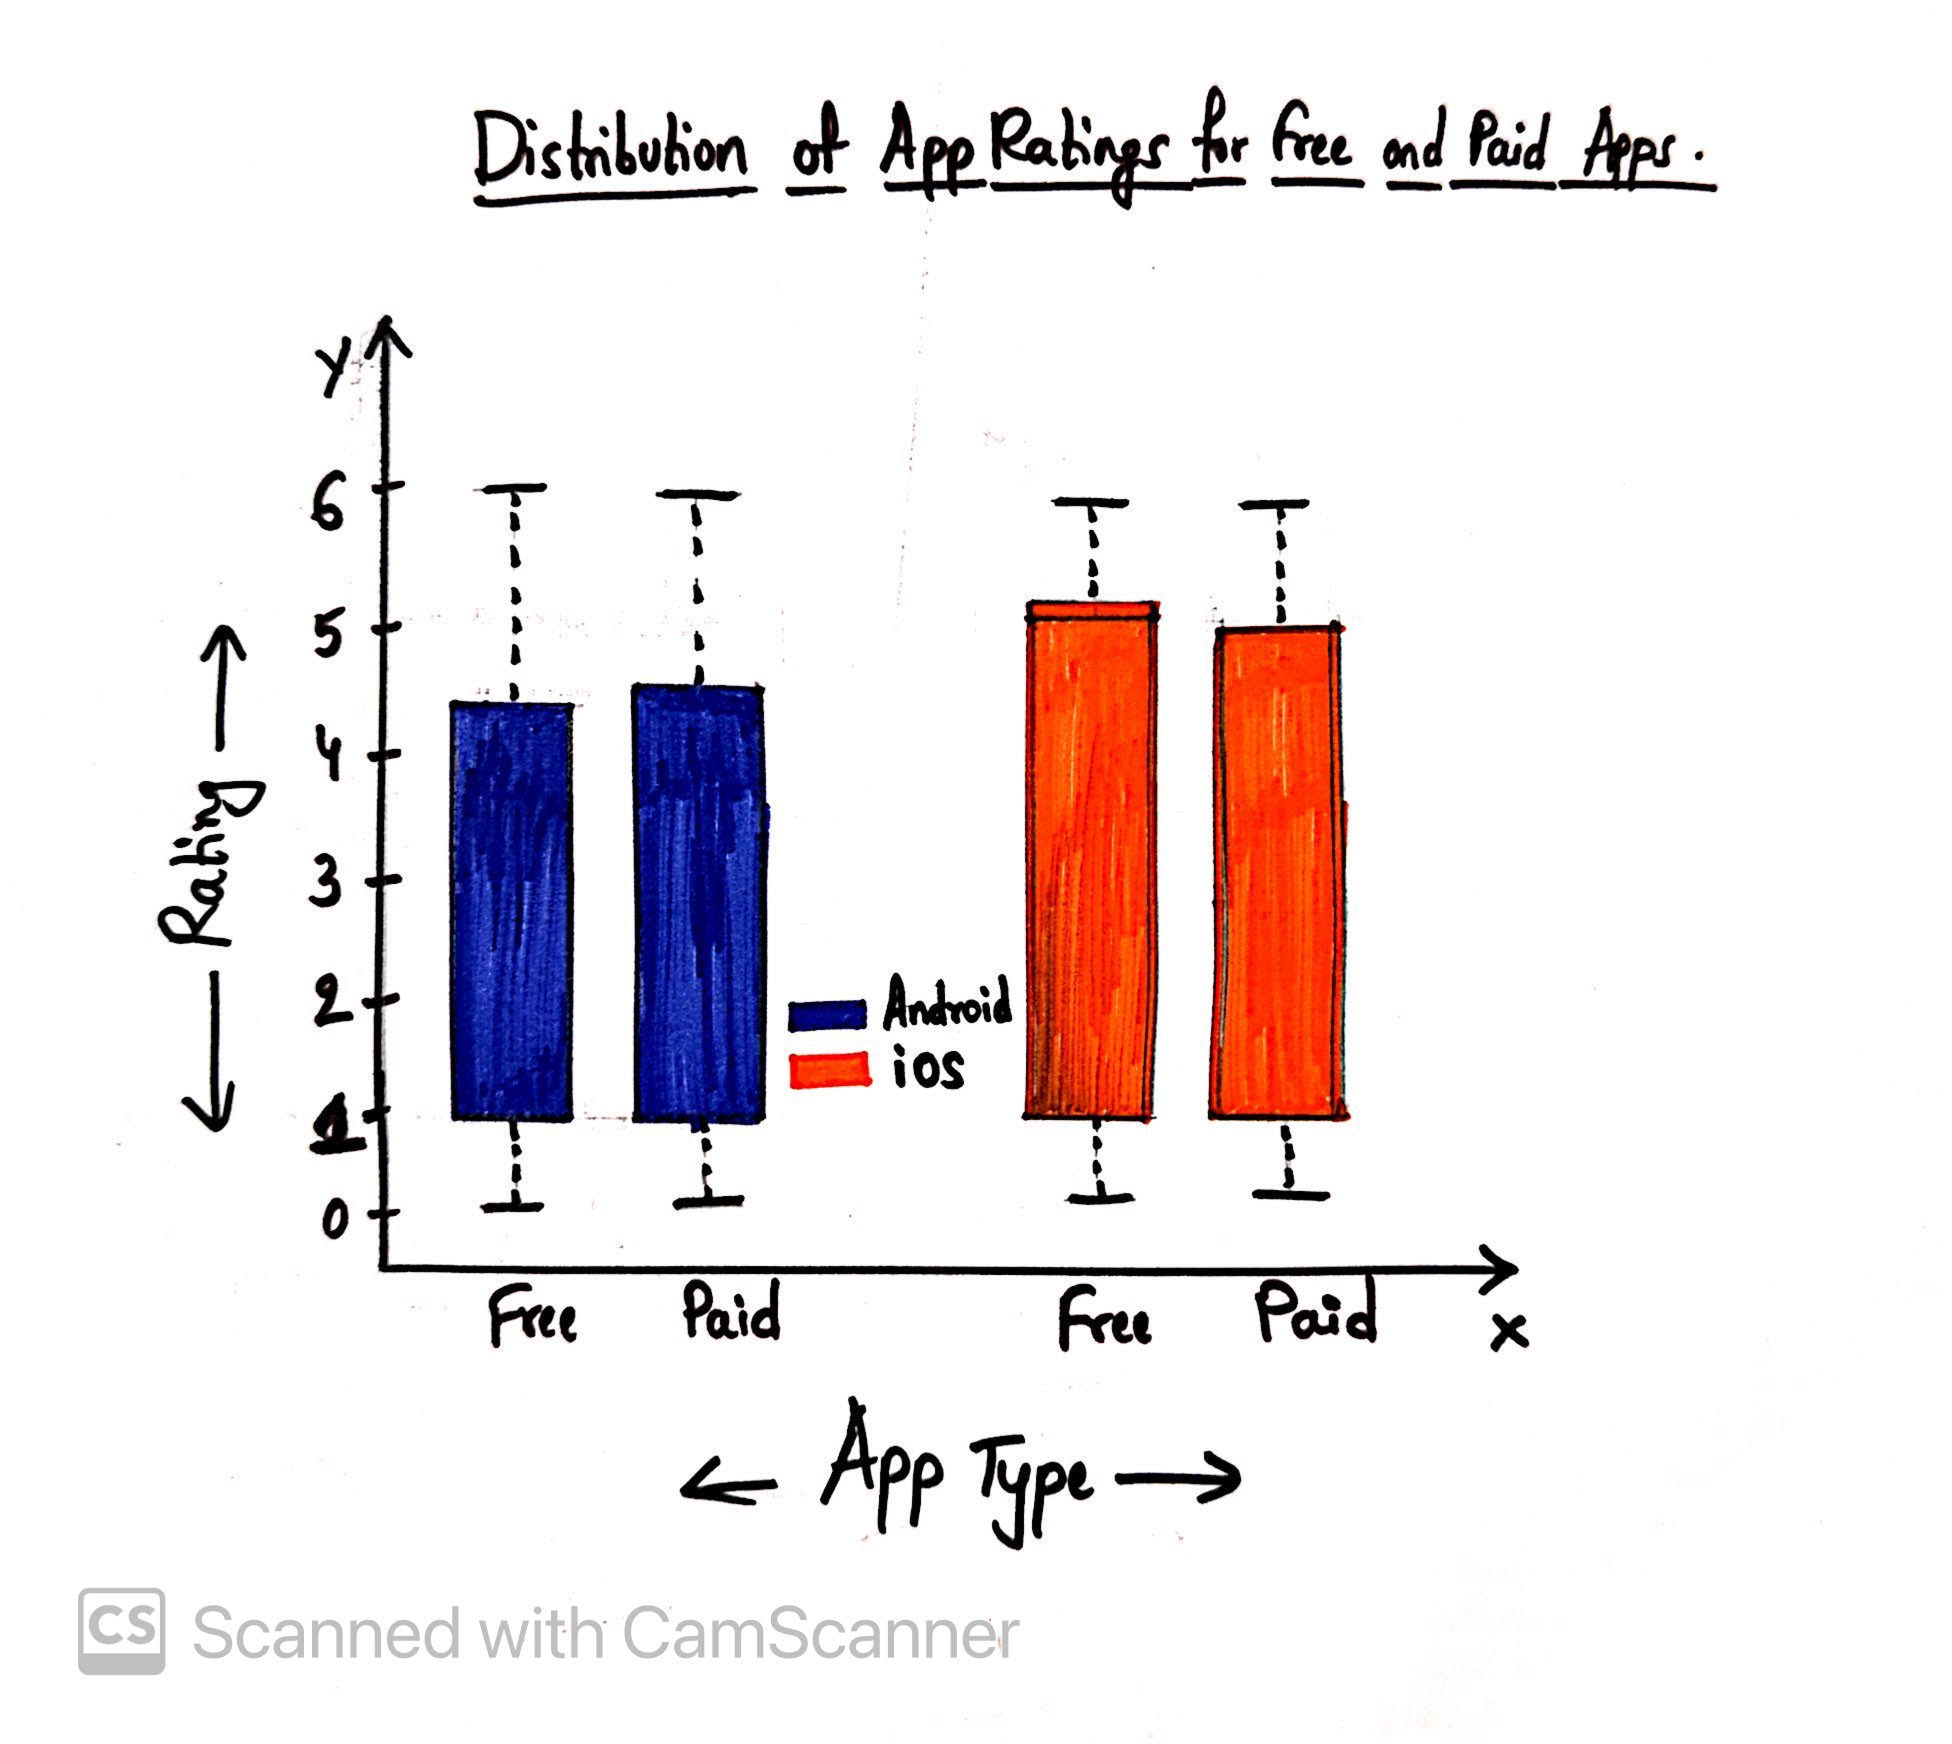 Distribution of App Ratings for Free and Paid Apps.
Y
6
5
4
3
2
1
0
Rating
Android
ios
Free Paid Free Paid
X
App Type
CS Scanned with CamScanner